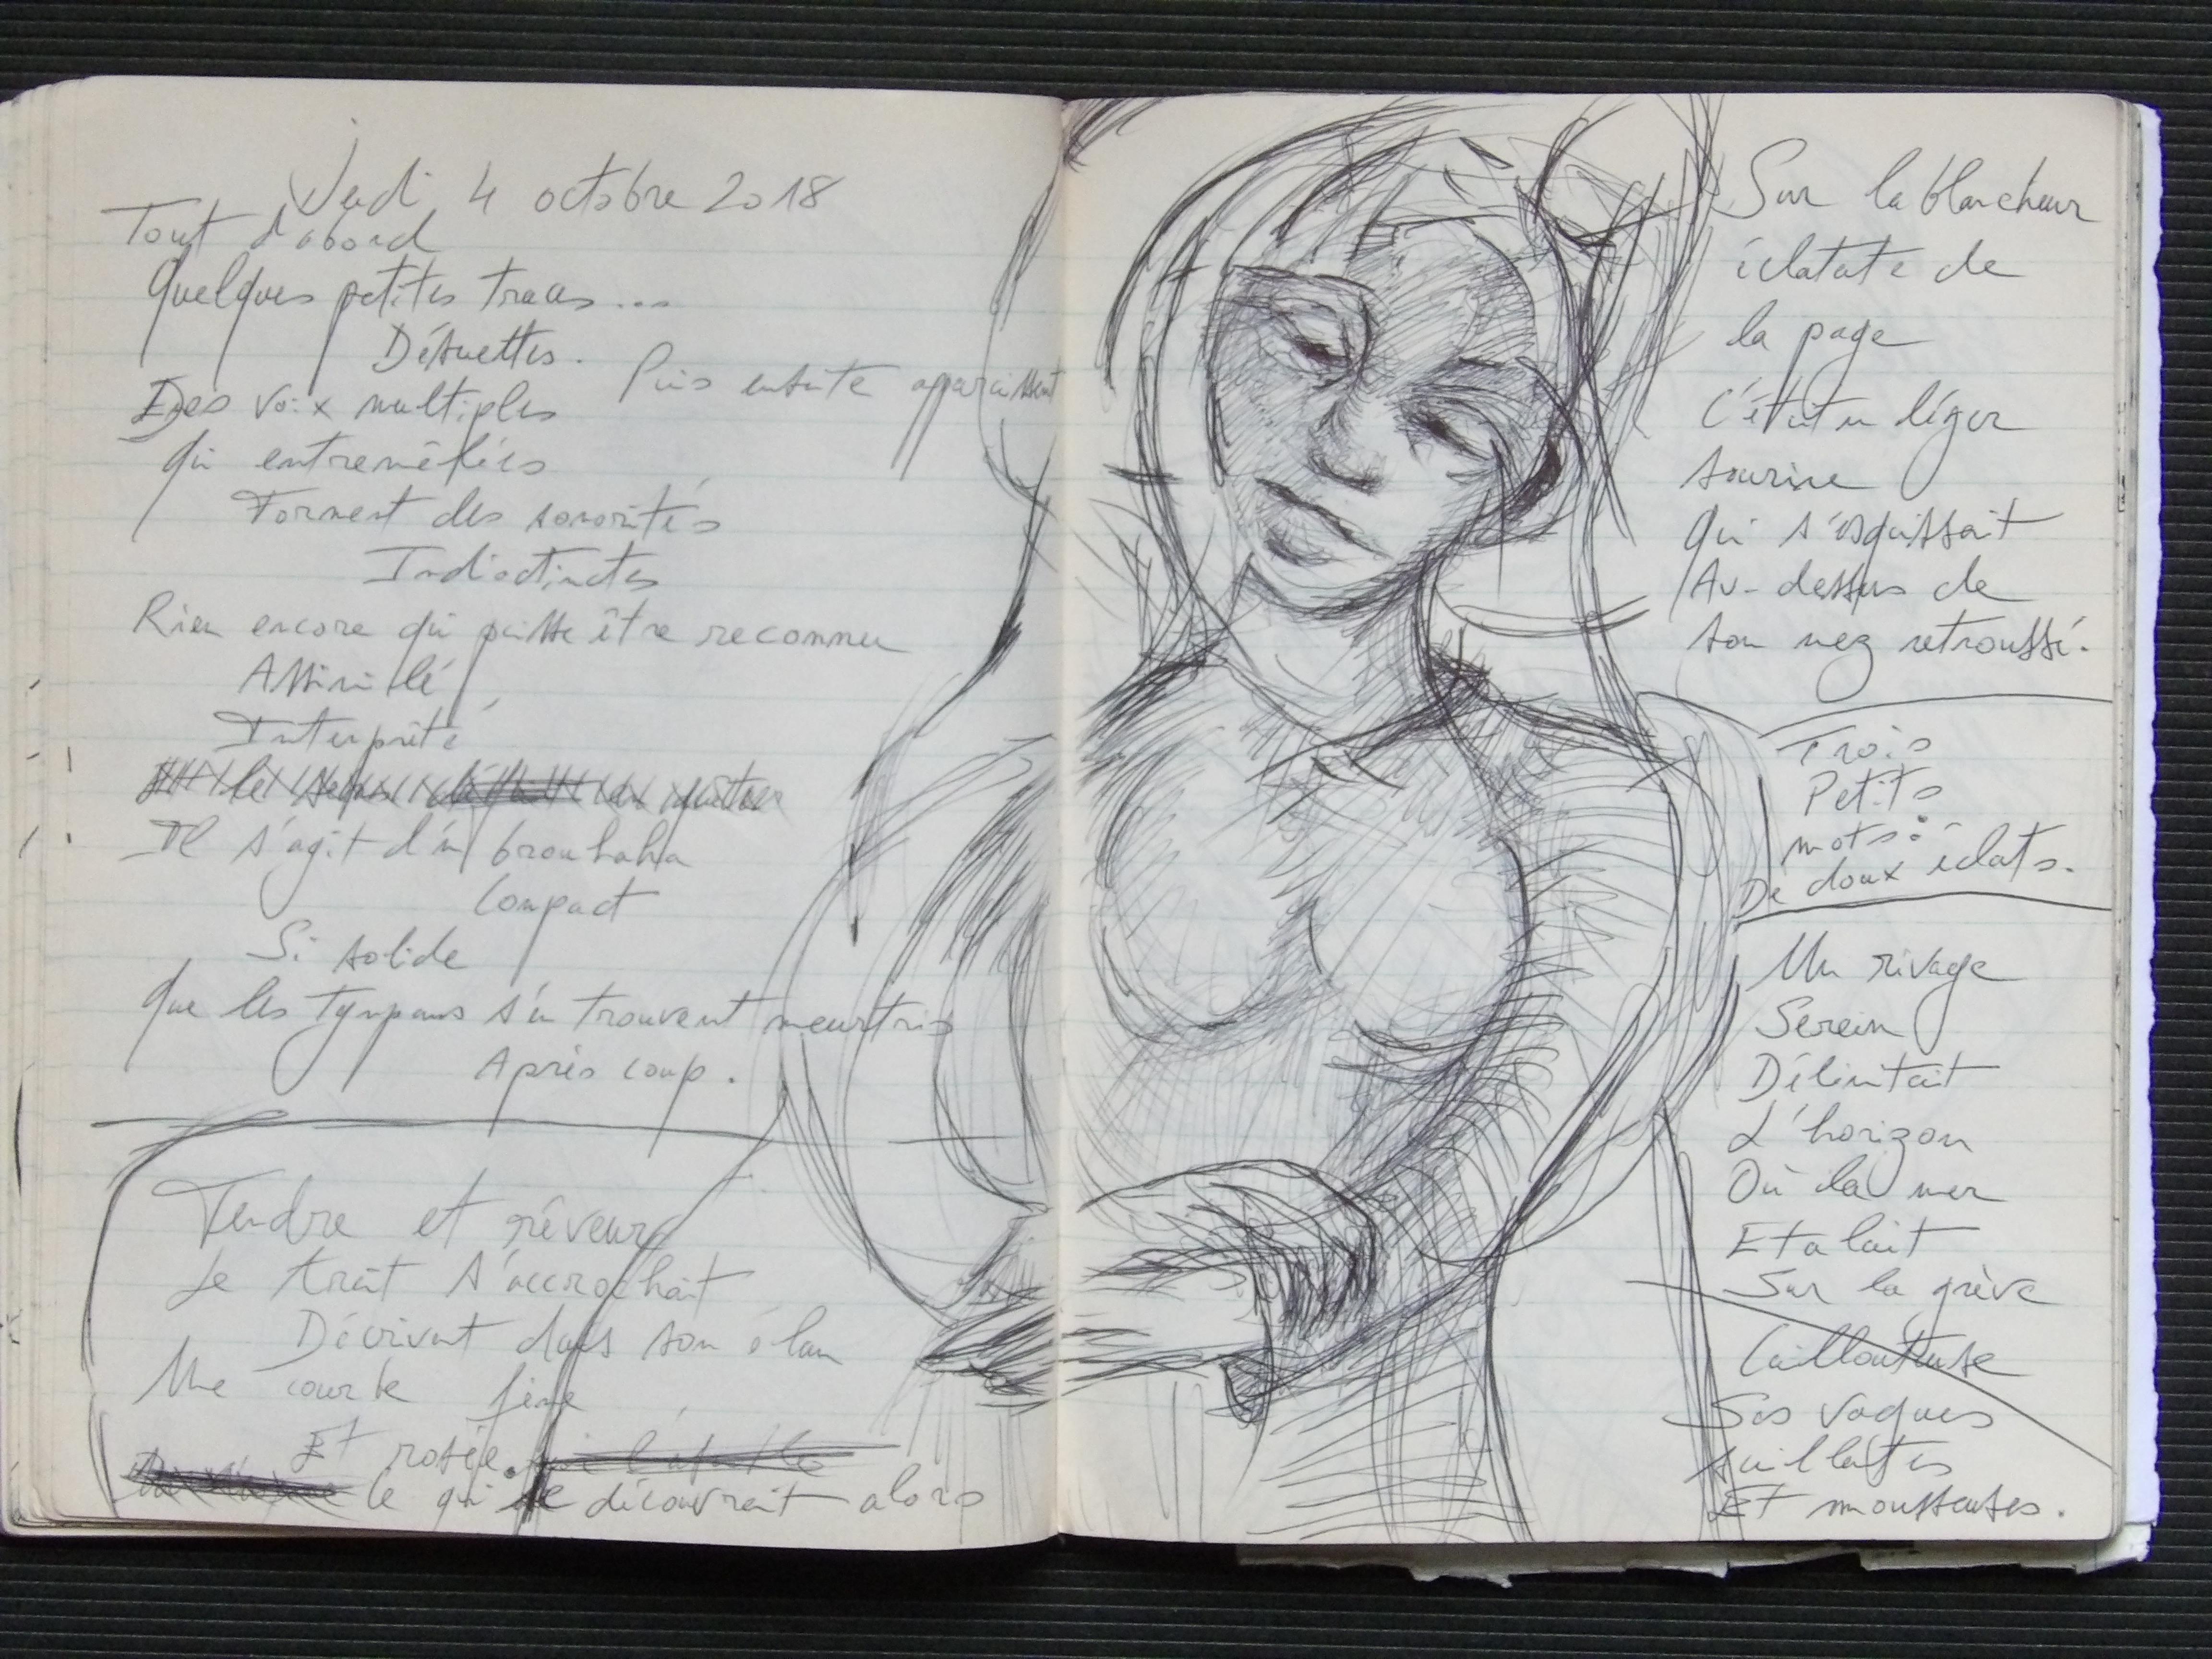 Jeudi 4 octobre 2018
Tout d'abord
Quelques petites traces...
Désuettes.
Puis ensuite apparaissent
Des voix multiples
Qui entremêlées
Forment des sonorités
Indistinctes
Rien encore qui puisse être reconnu
Assimilé
Interprété
Il s'agit d'un brouhaha
Compact
Si solide
Que les tympans s'en trouvent meurtris
Après coup.
Tendre et rêveur
Le trait s'accrochait
Décrivant dans son élan
Une courbe fine
Et rosée.
Ce qui se découvrait alors
Sur la blancheur
éclatante de
la page
C'était un léger
sourire
Qui s'esquissait
Au-dessus de
son nez retroussé.
Trois
Petits
mots :
De doux éclats.
Un rivage
Serein
Délimitait
L'horizon
Où la mer
Etalait
Sur la grève
Caillouteuse
Ses vagues
saillantes
Et mousseuses.